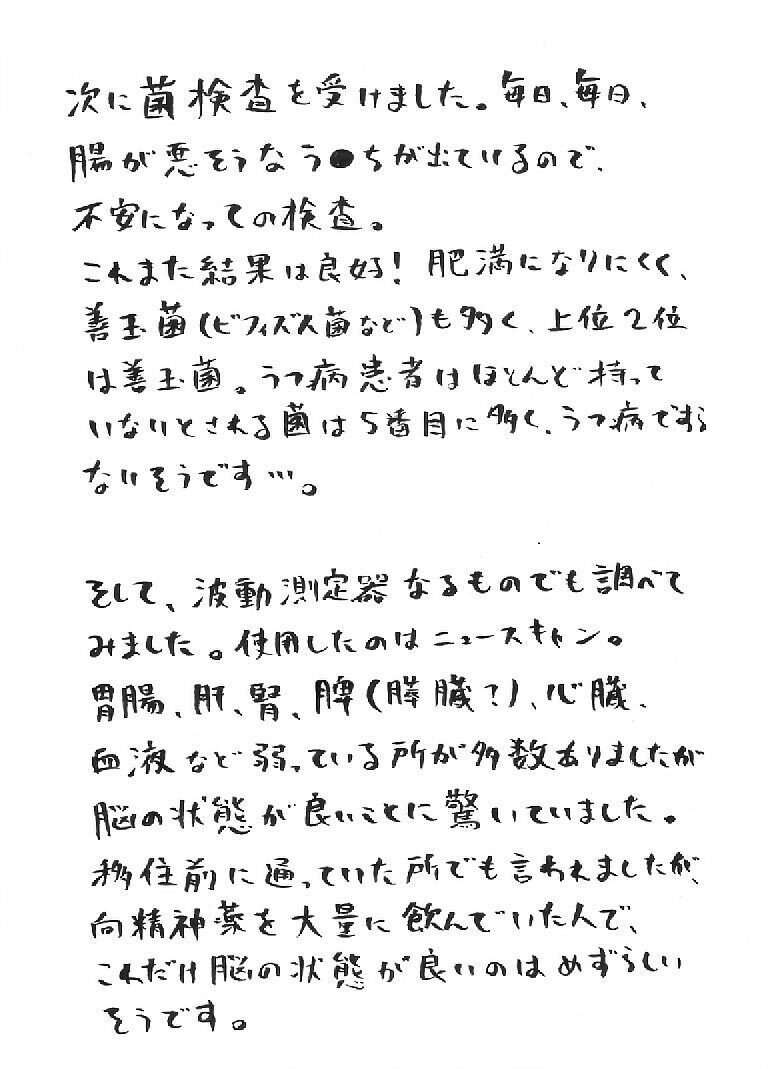 次に菌検査を受けました。毎日、毎日、
腸が悪そうなう●ちが出ているので、
不安になっての検査。
これまた結果は良好！肥満になりにくく、
善玉菌(ビフィズス菌など)も多く、上位2位
は善玉菌。うつ病患者はほとんど持って
いないとされる菌は5番目に多く、うつ病ですら
ないそうです…。
そして、波動測定器なるものでも調べて
みました。使用したのはニュースキャン。
胃腸、肝、腎、脾(膵臓?)、心臓、
血液など弱っている所が多数ありましたが
脳の状態が良いことに驚いていました。
移住前に通っていた所でも言われましたが、
向精神薬を大量に飲んでいた人で、
これだけ脳の状態が良いのはめずらしい
そうです。